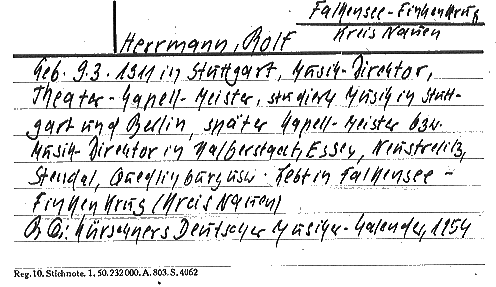 Falkensee-Finkenkrug
Kreis Nauen
Herrmann, Rolf
Geb. 9.3.1911 in Stuttgart, Musik-Direktor,
Theater-Kapell-Meister, studierte Musik in Stutt-
gart und Berlin, später Kapell-Meister bzw.
Musik-Direktor in Halberstadt, Essen, Neustrelitz,
Stendal, Quedlinburg usw. Lebt in Falkensee-
Finkenkrug (Kreis Nauen)
B.Q.: Kürschners Deutscher Musiker-Kalender, 1954
Reg. 10. Stichnote. 1. 50. 232 000. A. 803. S. 4062